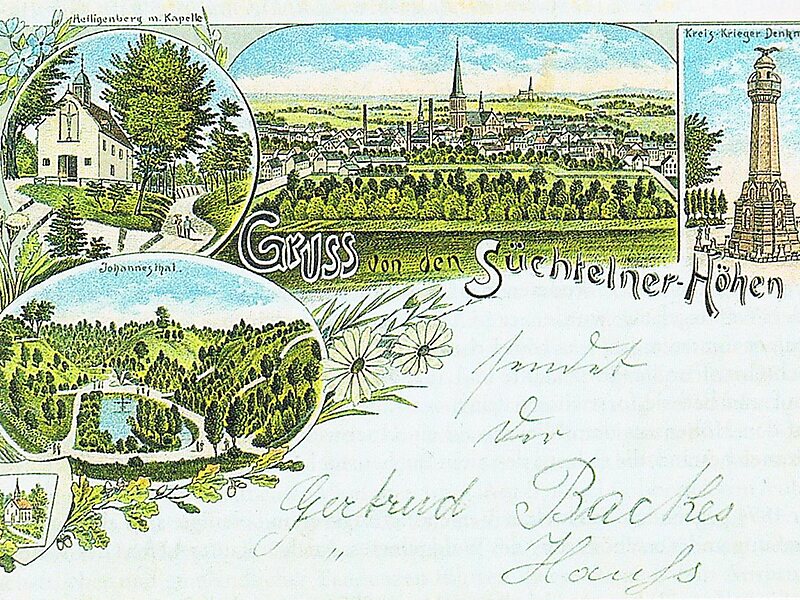 Heiligenberg m. Kapelle
Kreis-Krieger-Denkm
Gruss von den Süchtelner-Höhen
Johannesthal.
sendet
Dir
Gertrud Backes